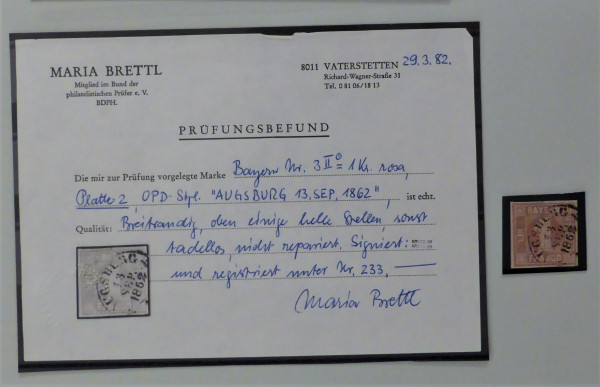 MARIA BRETTL
Mitglied im Bund der
philatelistischen Prüfer e. V.
BDPH.
8011 VATERSTETTEN 29.3.82.
Richard-Wagner-Straße 31
Tel. 0 81 06 / 18 13
PRÜFUNGSBEFUND
Die mir zur Prüfung vorgelegte Marke Bayern Nr. 3 II = 1 Kr. rosa,
Platte 2, OPD-Stpl. "AUGSBURG 13. SEP. 1862", ist echt.
Qualität: Breitrandig, oben einige helle Stellen, sonst
tadellos, nicht repariert. Signiert:
und registriert unter Nr. 233.
Maria Brettl
1862
BAYE
1862